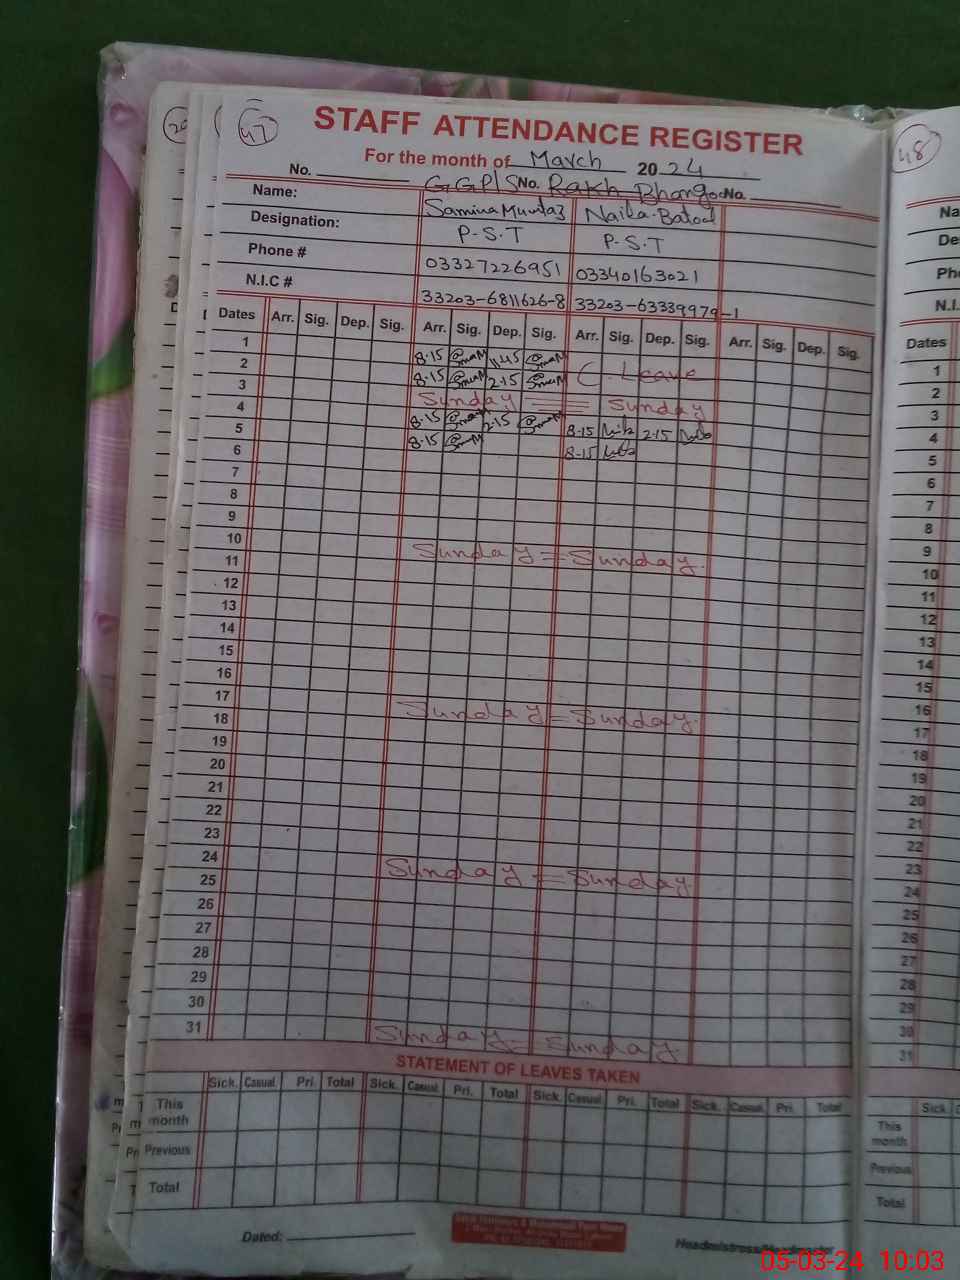 47
STAFF ATTENDANCE REGISTER
For the month of March 2024
No. GGP/S No. Rakh Bhangoo No.
Name: Samina Mumtaz Naila Batool
Designation: P.S.T P.S.T
Phone # 03327226951 03340163021
N.I.C # 33203-6811626-8 33203-63339979-1
Dates Arr. Sig. Dep. Sig. Arr. Sig. Dep. Sig. Arr. Sig. Dep. Sig. Arr. Sig. Dep. Sig.
1 8.15 11.45
2 8.15 2.15 C. Leave
3 Sunday Sunday
4 8.15 2.15 8.15 2.15
5 8.15 8.15
6
7
8
9
10 Sunday = Sunday
11
12
13
14
15
16
17 Sunday = Sunday
18
19
20
21
22
23
24 Sunday = Sunday
25
26
27
28
29
30
31 Sunday = Sunday
STATEMENT OF LEAVES TAKEN
Sick. Casual. Pri. Total Sick. Casual. Pri. Total Sick. Casual. Pri. Total Sick. Casual. Pri. Total
This month
Previous
Total
Dated:
Headmistress/Headmaster
48
Na
De
Ph
N.I.
Dates
1
2
3
4
5
6
7
8
9
10
11
12
13
14
15
16
17
18
19
20
21
22
23
24
25
26
27
28
29
30
31
Sick.
This month
Previous
Total
05-03-24 10:03